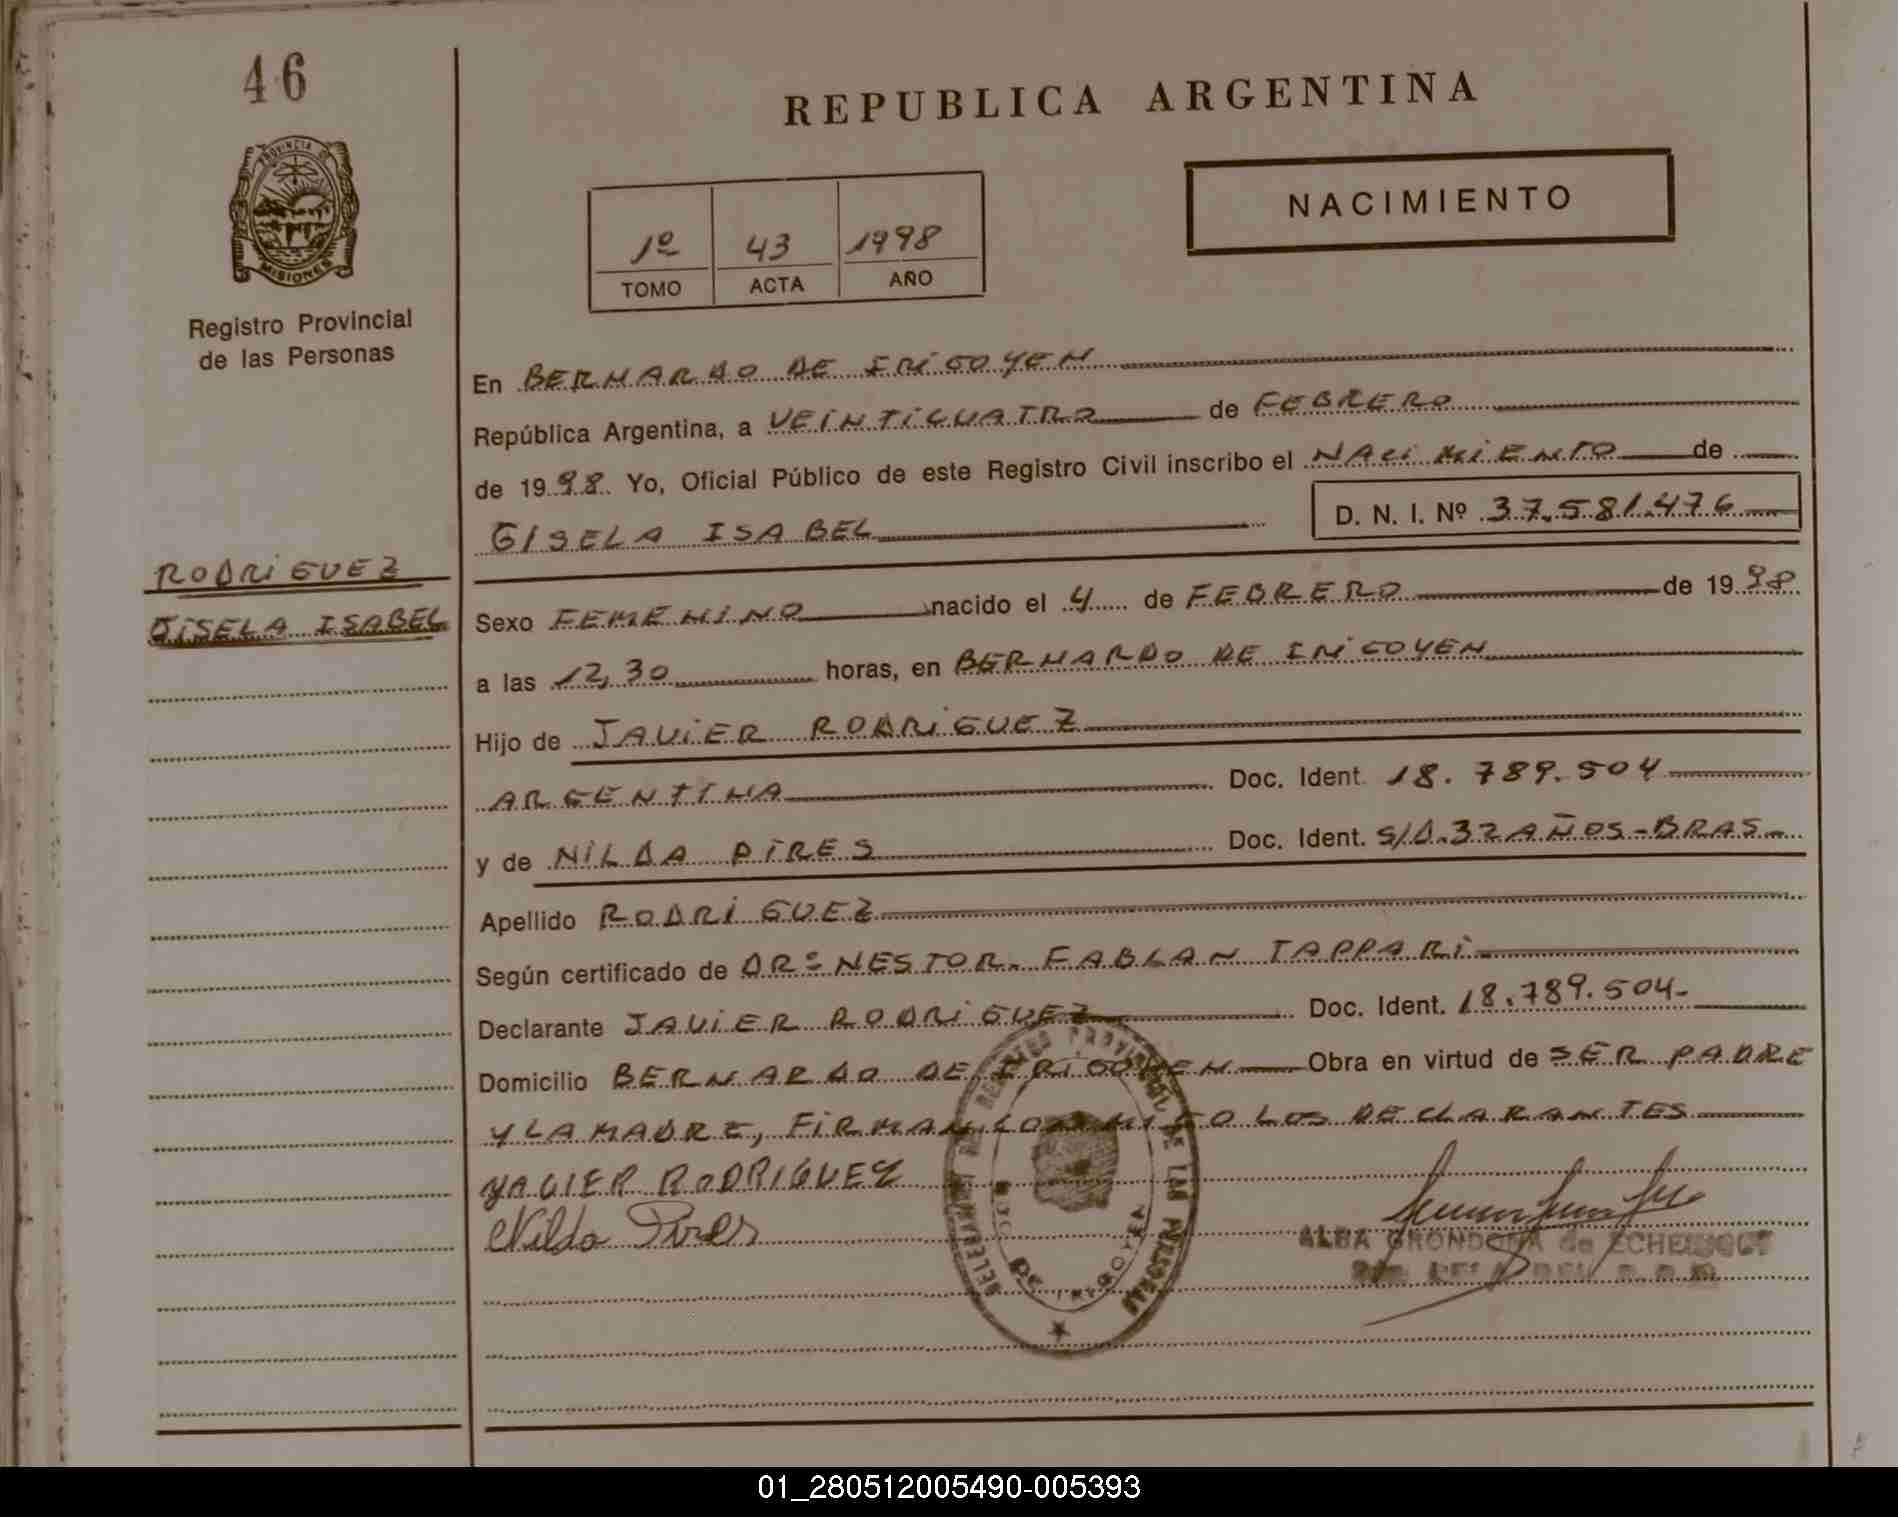 46
PROVINCIA DE
MISIONES
Registro Provincial
de las Personas
RODRIGUEZ
GISELA ISABEL
REPUBLICA ARGENTINA
NACIMIENTO
1º 43 1998
TOMO ACTA AÑO
En BERNARDO DE IRIGOYEN
República Argentina, a VEINTICUATRO de FEBRERO
de 1998 Yo, Oficial Público de este Registro Civil inscribo el NACIMIENTO de
GISELA ISABEL D. N. I. Nº 37.581.476
Sexo FEMENINO nacido el 4 de FEBRERO de 1998
a las 12,30 horas, en BERNARDO DE IRIGOYEN
Hijo de JAVIER RODRIGUEZ
ARGENTINA Doc. Ident. 18.789.504
y de NILDA PIRES Doc. Ident. S/D.32 AÑOS-BRAS-
Apellido RODRIGUEZ
Según certificado de DRº NESTOR FABIAN TAPPARI
Declarante JAVIER RODRIGUEZ Doc. Ident. 18.789.504-
Domicilio BERNARDO DE IRIGOYEN Obra en virtud de SER PADRE
Y LA MADRE, FIRMAN CONMIGO LOS DECLARANTES
YAVIER RODRIGUEZ
Nilda Pires
REGISTRO PROVINCIAL DE LAS PERSONAS
DE IRIGOYEN
ALBA GRONDONA de
01_280512005490-005393